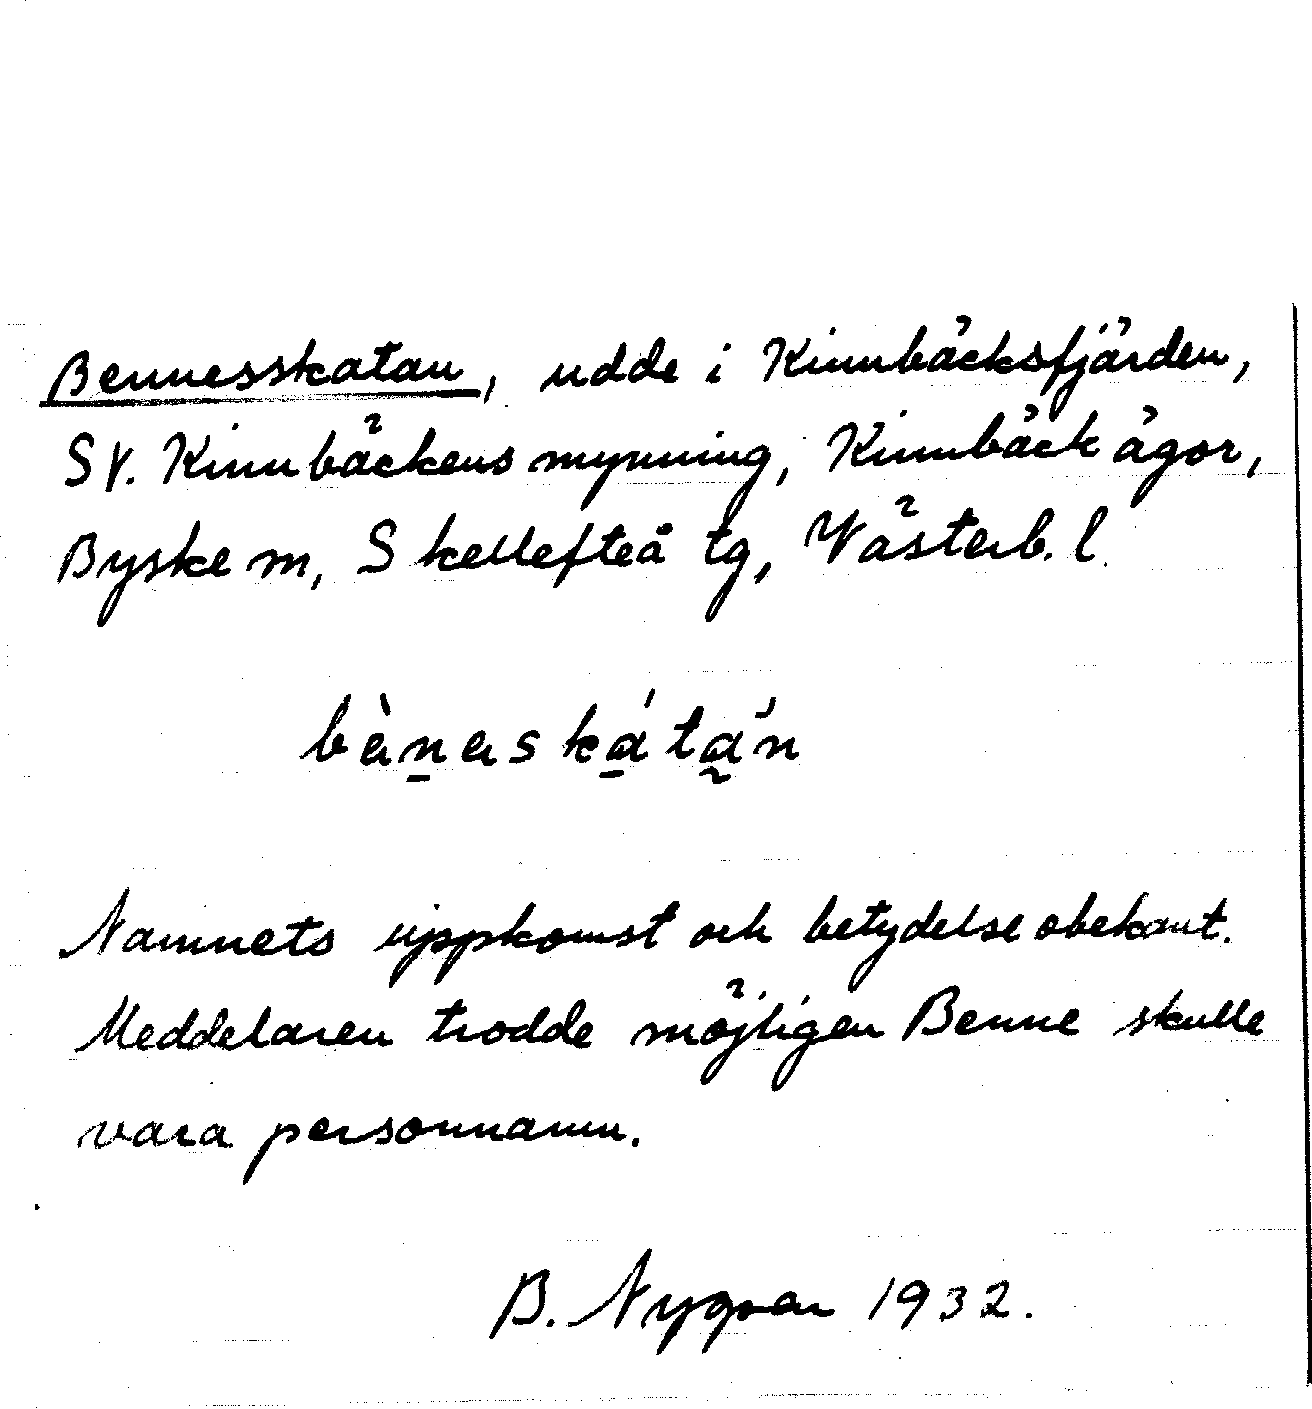 Bennesskatan, udde i Kinnbäcksfjärden,
SV. Kinnbäckens mynning, Kinnbäck ägor,
Byske sn, Skellefteå tg, Västerb. l.
bènaskátán
Namnets uppkomst och betydelse obekant.
Meddelaren trodde möjligen Benne skulle
vara personnamn.
B. Nygren 1932.